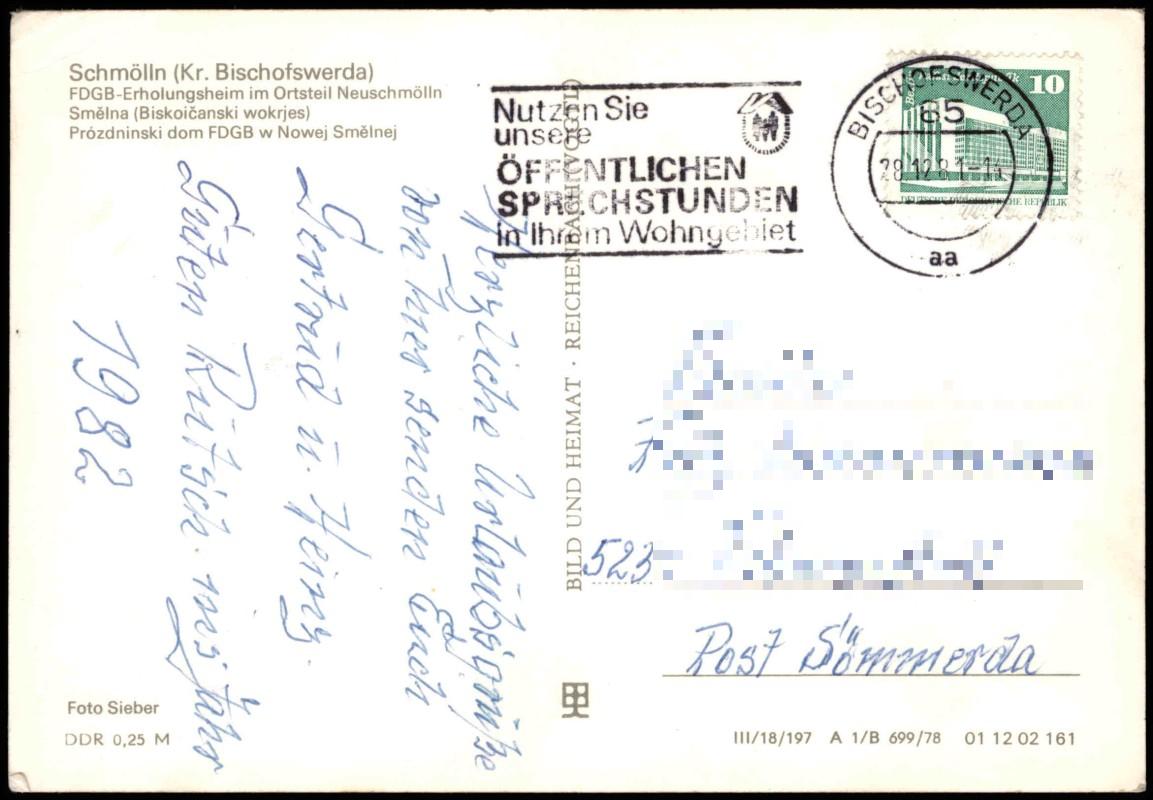 Schmölln (Kr. Bischofswerda)
FDGB-Erholungsheim im Ortsteil Neuschmölln
Smělna (Biskoičanski wokrjes)
Prózdninski dom FDGB w Nowej Smělnej
Nutzen Sie
unsere
ÖFFENTLICHEN
SPRECHSTUNDEN
in Ihrem Wohngebiet
BISCHOFSWERDA
85
28.12.81-14
aa
10
DEUTSCHE DEMOKRATISCHE REPUBLIK
Herzliche Urlaubsgrüße
von hier senden Euch
Gertrud u. Heinz.
Guten Rutsch ins Jahr
1982
BILD UND HEIMAT · REICHENBACH I. V.
523
Post Sömmerda
Foto Sieber
DDR 0,25 M
III/18/197 A 1/B 699/78 01 12 02 161